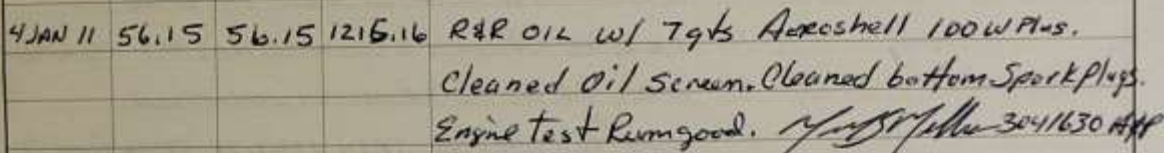 4 JAN 11 56.15 56.15 1215.16 R&R OIL W/ 7qts Aeroshell 100W Plus.
Cleaned Oil Screen. Cleaned bottom Spark Plugs.
Engine Test Run good. 3041630 A&P